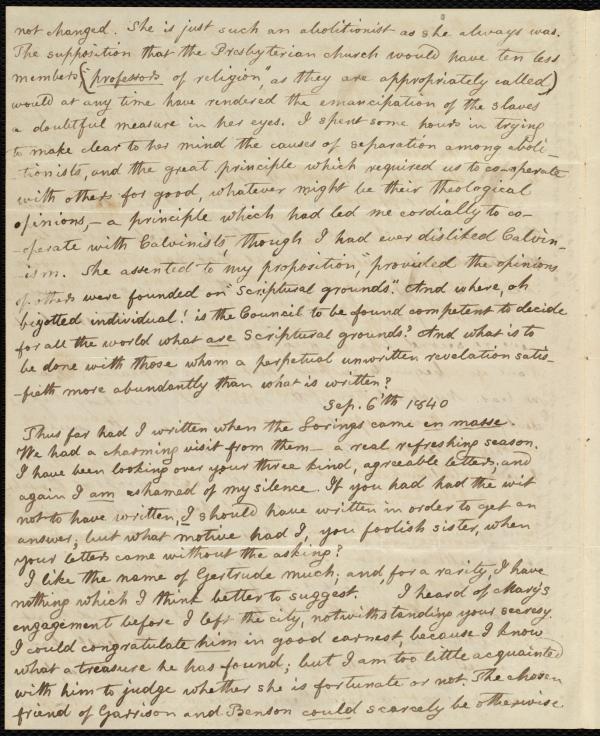 not changed. She is just such an abolitionist as she always was.
The supposition that the Presbyterian church would have ten less
members ("professors of religion", as they are appropriately called)
would at any time have rendered the emancipation of the slaves
a doubtful measure in her eyes. I spent some hours in trying
to make clear to her mind the causes of separation among aboli-
-tionists, and the great principle which required us to co-operate
with others for good, whatever might be their theological
opinions,— a principle which had led me cordially to co-
-operate with Calvinists, though I had ever disliked Calvin-
-ism. She assented to my proposition, "provided the opinions
of others were founded on "Scriptural grounds". And where, oh
bigotted individual! is the Council to be found competent to decide
for all the world what are Scriptural grounds? And what is to
be done with those whom a perpetual unwritten revelation satis-
-fieth more abundantly than what is written?
Sep. 6'th 1840
Thus far had I written when the Lorings came en masse.
We had a charming visit from them— a real refreshing season.
I have been looking over your three kind, agreeable letters, and
again I am ashamed of my silence. If you had had the wit
not to have written, I should have written in order to get an
answer; but what motive had I, you foolish sister, when
your letters came without the asking?
I like the name of Gertrude much; and, for a rarity, I have
nothing which I think better to suggest. I heard of Mary's
engagement before I left the city, notwithstanding your secresy.
I could congratulate him in good earnest, because I know
what a treasure he has found; but I am too little acquainted
with him to judge whether she is fortunate or not. The chosen
friend of Garrison and Benson could scarcely be otherwise